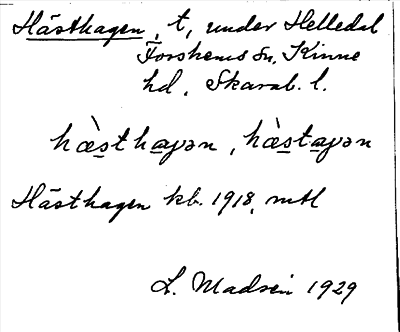 Hästhagen, t, under Helledal
Forshems sn, Kinne
hd, Skarab. l.
hæ̀sthaɡən, hæ̀staɡən
Hästhagen kb. 1918, mtl
L. Madsén 1929